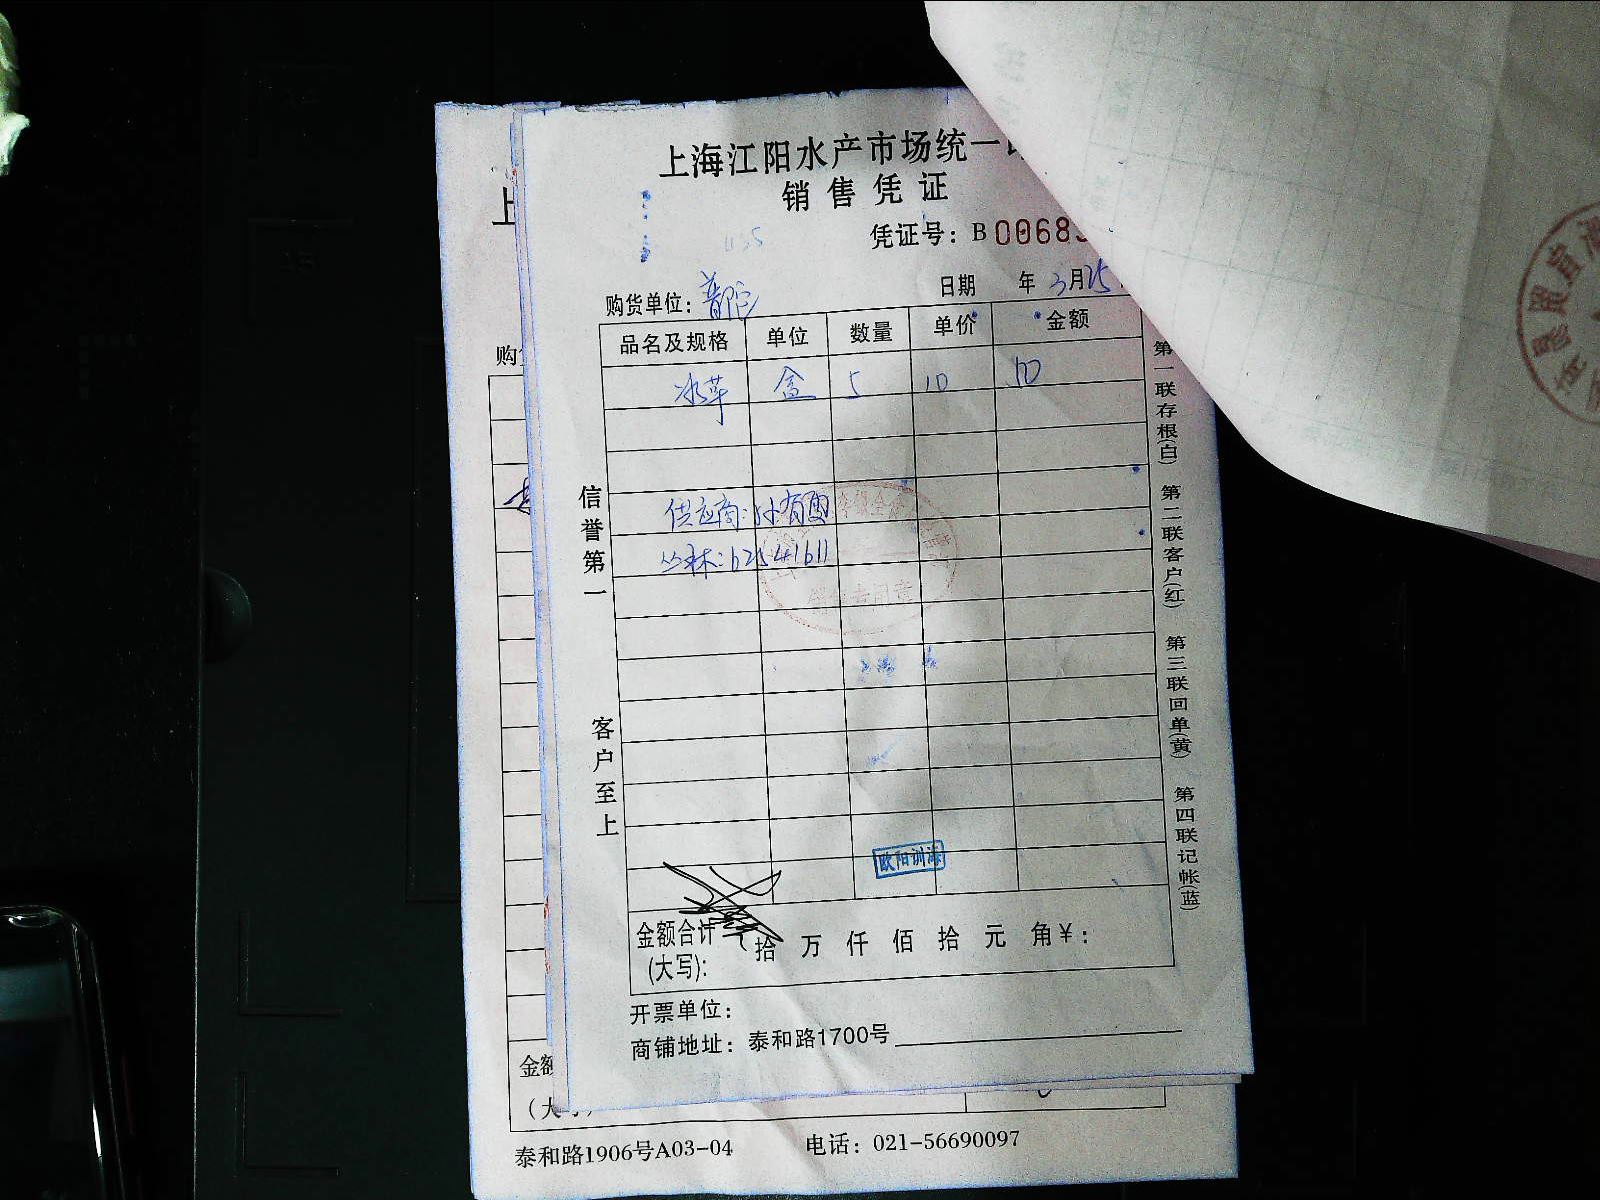 上海江阳水产市场统一
销售凭证
凭证号：B 00685
购货单位：普陀
日期 年 3月25
品名及规格 单位 数量 单价 金额
盒 5 10 50
供应商：
62541611
信誉第一
客户至上
欧阳训海
金额合计 拾 万 仟 佰 拾 元 角 ¥：
(大写)：
开票单位：
商铺地址：泰和路1700号
第一联存根(白) 第二联客户(红) 第三联回单(黄) 第四联记帐(蓝)
上
购
金额
（大写）
泰和路1906号A03-04 电话：021-56690097